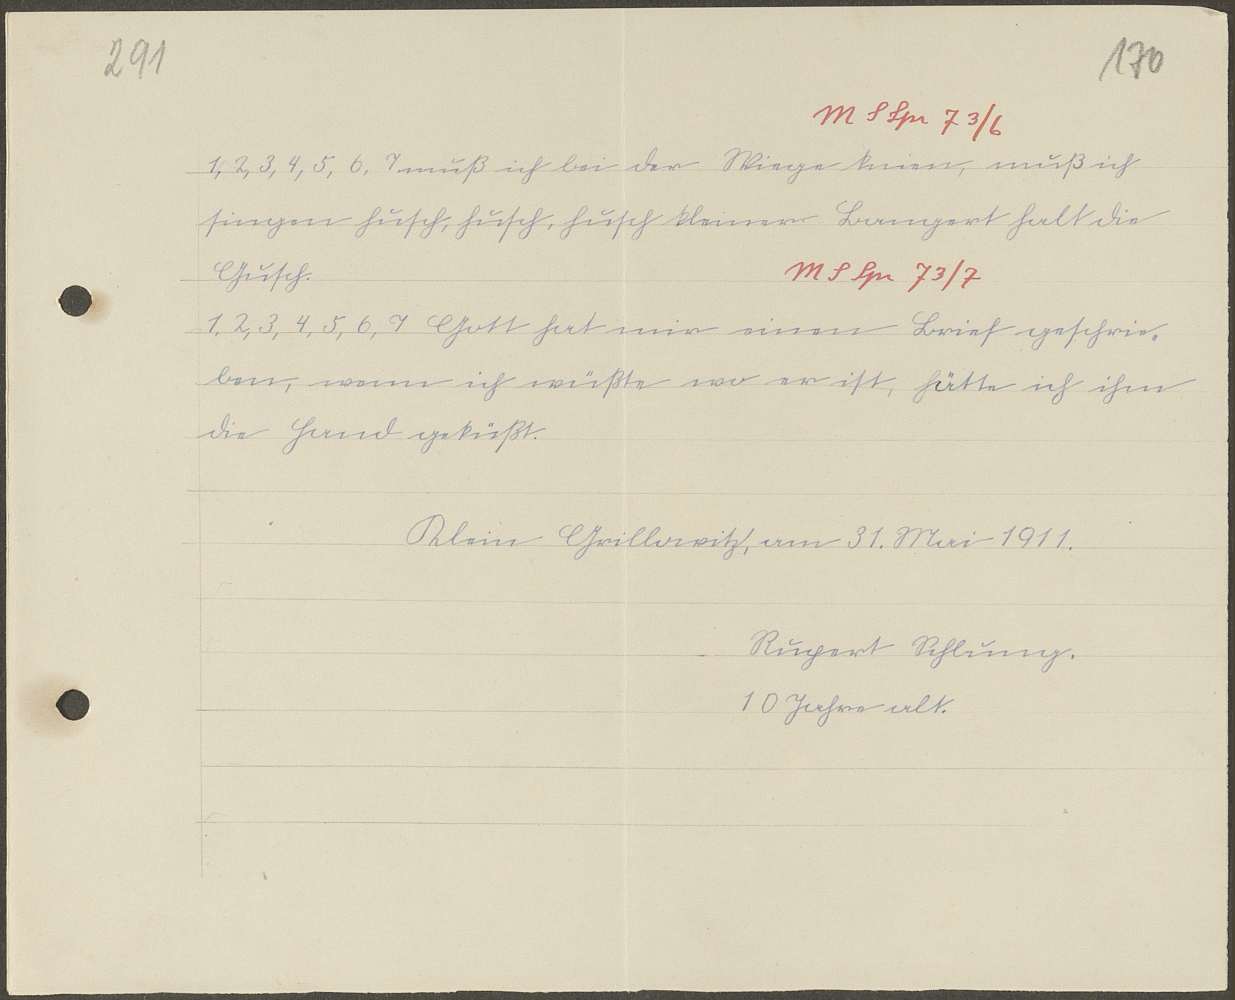 291
170
M S Spr 73/6
1, 2, 3, 4, 5, 6, 7 muß ich bei der Wiege knien, muß ich
singen husch, husch, husch kleiner Bangert halt die
Gusch.
M S Spr 73/7
1, 2, 3, 4, 5, 6, 7 Gott hat mir einen Brief geschrie-
ben, wenn ich wüßte wo er ist, hätte ich ihm
die Hand geküßt.
Klein Grillowitz, am 31. Mai 1911.
Rupert Schlung.
10 Jahre alt.